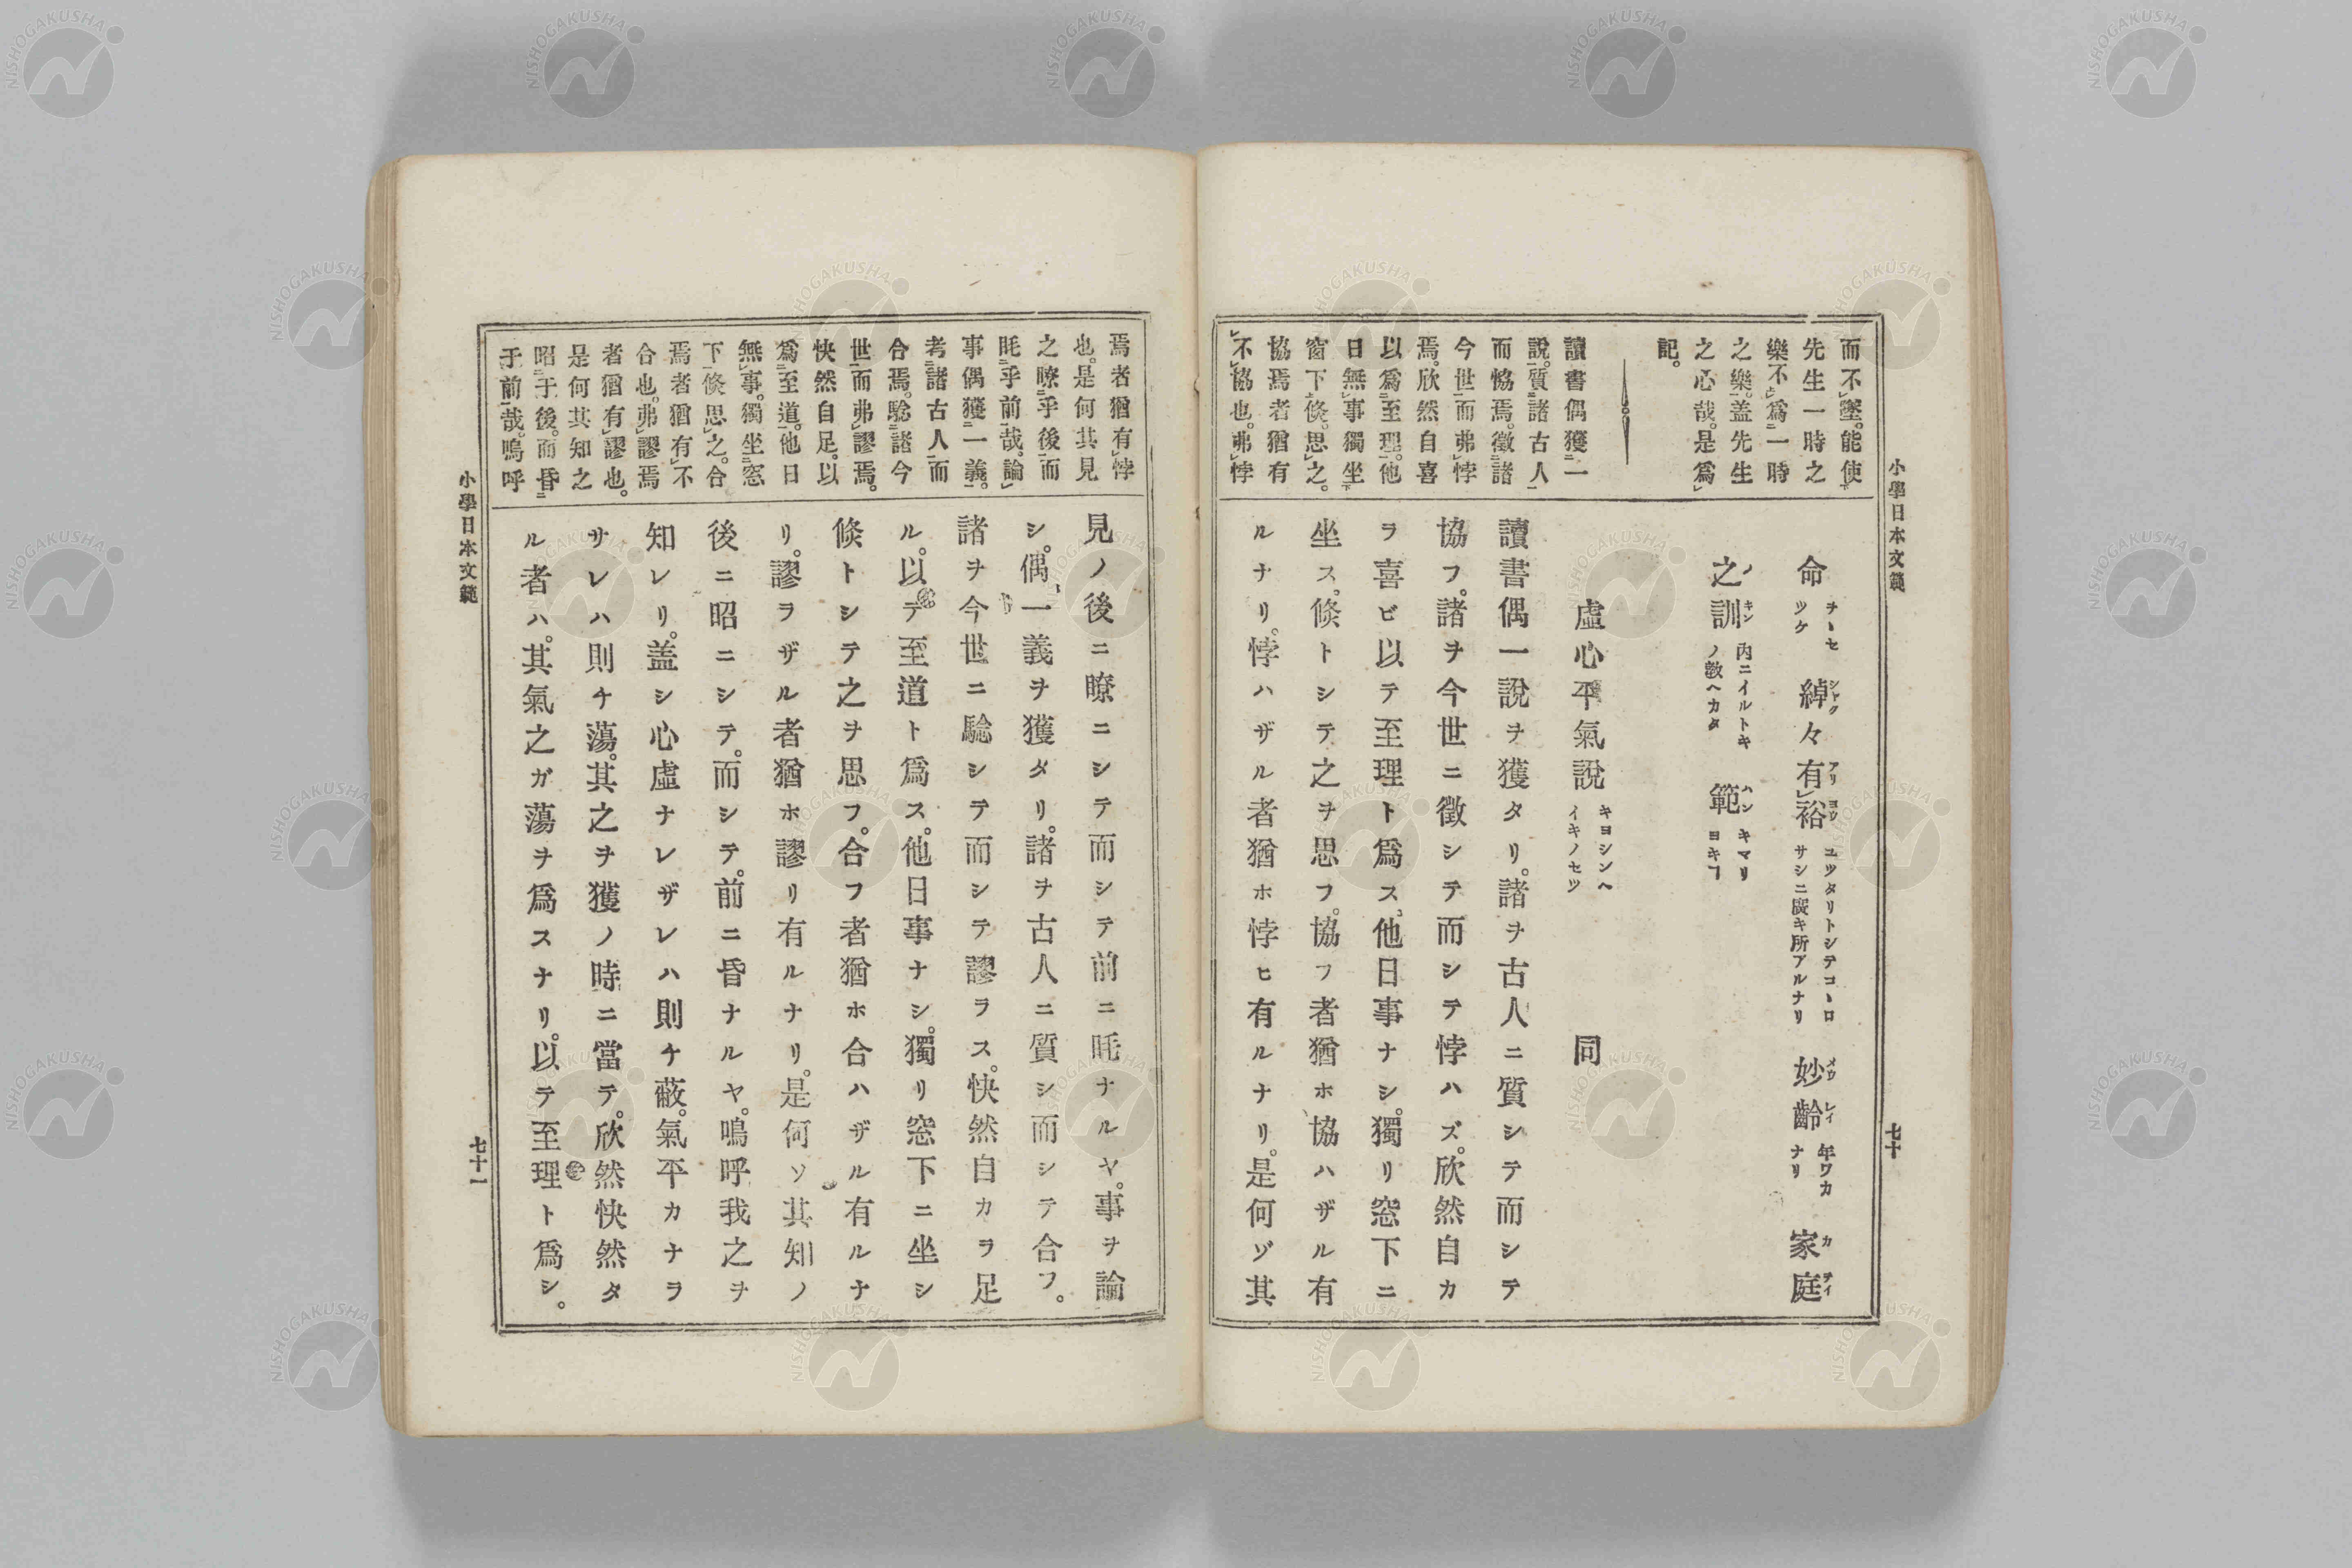 小學日本文範
七十
而不墜。能使
先生一時之
樂不爲一時
之樂。盖先生
之心哉。是爲
記。
讀書偶獲一
說。質諸古人
而恊焉。徵諸
今世而弗悖
焉。欣然自喜
以爲至理。他
日無事獨坐
窗下。倐思之。
協焉者猶有
不協也。弗悖
命 チヽセツケ 綽々有裕 ユツタリトシテコヽロサシニ廣キ所アルナリ 妙齡 年ワカナリ 家庭
之訓 内ニイルトキノ敎ヘカタ 範 キマリ
虛心平氣說 キヨシンヘイキノセツ 同
讀書偶一說ヲ獲タリ。諸ヲ古人ニ質シテ而シテ
協フ。諸ヲ今世ニ徵シテ而シテ悖ハズ。欣然自カ
ラ喜ビ以テ至理ト爲ス。他日事ナシ。獨リ窓下ニ
坐ス。倐トシテ之ヲ思フ。協フ者猶ホ協ハザル有
ルナリ。悖ハザル者猶ホ悖ヒ有ルナリ。是何ゾ其
焉者猶有悖
也。是何其見
之瞭乎後而
眊乎前哉。論
事偶獲一義。
考諸古人而
合焉。驗諸今
世而弗謬焉。
快然自足。以
爲至道。他日
無事。獨坐窓
下倐思之。合
焉者猶有不
合也。弗謬焉
者猶有謬也。
是何其知之
昭于後。而昏
于前哉。嗚呼
見ノ後ニ瞭ニシテ而シテ前ニ眊ナルヤ。事ヲ論
シ。偶一義ヲ獲タリ。諸ヲ古人ニ質シ而シテ合フ。
諸ヲ今世ニ驗シテ而シテ謬ラス。快然自カラ足
ル。以テ至道ト爲ス。他日事ナシ。獨リ窓下ニ坐シ
倐トシテ之ヲ思フ。合フ者猶ホ合ハザル有ルナ
リ。謬ラザル者猶ホ謬リ有ルナリ。是何ソ其知ノ
後ニ昭ニシテ。而シテ。前ニ昏ナルヤ。嗚呼我之ヲ
知レリ。盖シ心虛ナレザレハ則チ蔽。氣平カナラ
サレハ則チ蕩。其之ヲ獲ノ時ニ當テ。欣然快然タ
ル者ハ。其氣之ガ蕩ヲ爲スナリ。以テ至理ト爲シ。
小學日本文範
七十一